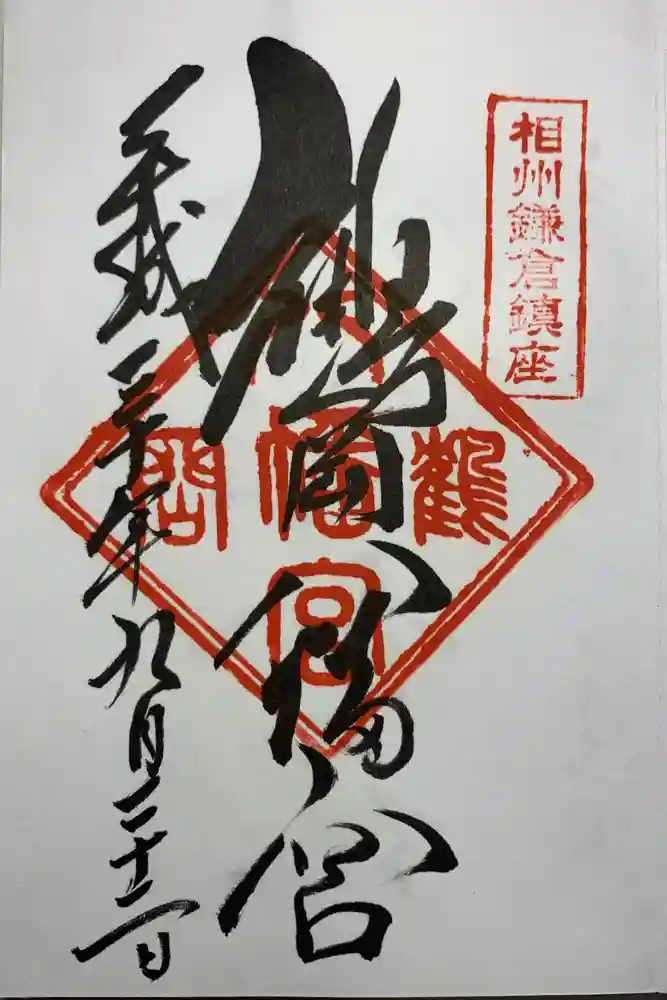 相州鎌倉鎮座
鶴岡八幡宮
鶴岡八幡宮
平成三十年九月二十二日